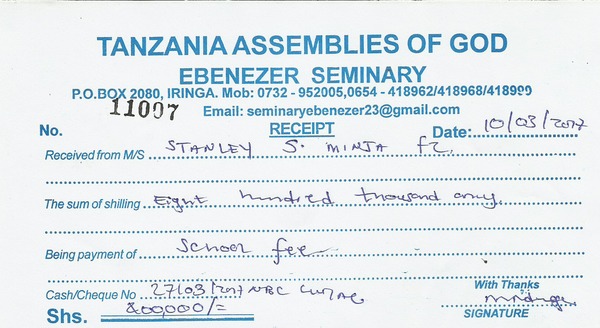 TANZANIA ASSEMBLIES OF GOD
EBENEZER SEMINARY
P.O.BOX 2080, IRINGA. Mob: 0732 - 952005,0654 - 418962/418968/418990
11007
Email: seminaryebenezer23@gmail.com
No. RECEIPT Date: 10/03/2017
Received from M/S STANLEY S. MINJA
The sum of shilling Eight hundred thousand only
Being payment of School fee
Cash/Cheque No 27/03/2017 NBC
With Thanks
Shs. 800,000/=
SIGNATURE